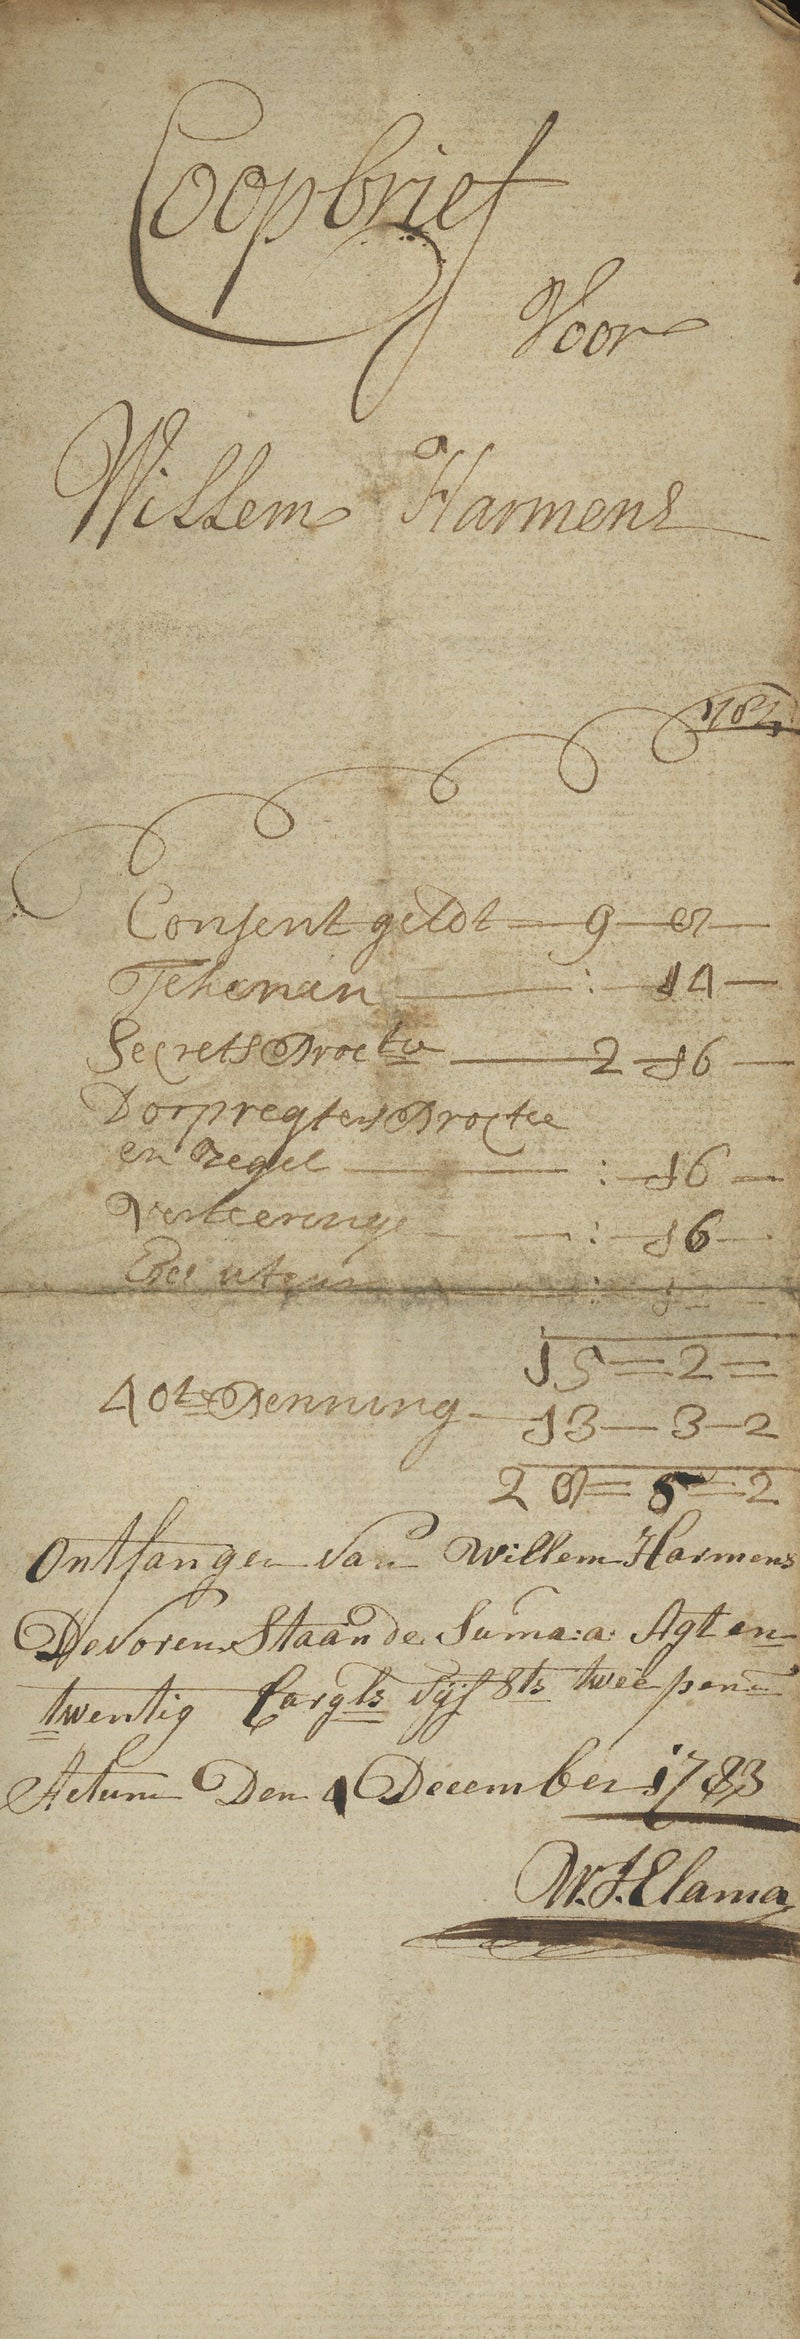 Coopbrief
Voor
Willem Harmens
Consent geldt — 9 — 8 —
Tekenen — : — 14 —
Secrets Procto — 2 — 16 —
Dorpregters Proctee
en zegel — : — 16 —
Verteeringe — : — 16 —
Executeur — : —
15 = 2 =
40te Penning — 13 — 3 — 2
28 = 5 = 2
Ontfangen van Willem Harmens
De voren Staande Suma:a: Agt en
twentig Cargls vijf sts twee penn
Actum Den 4 December 1783
W. J. Elama